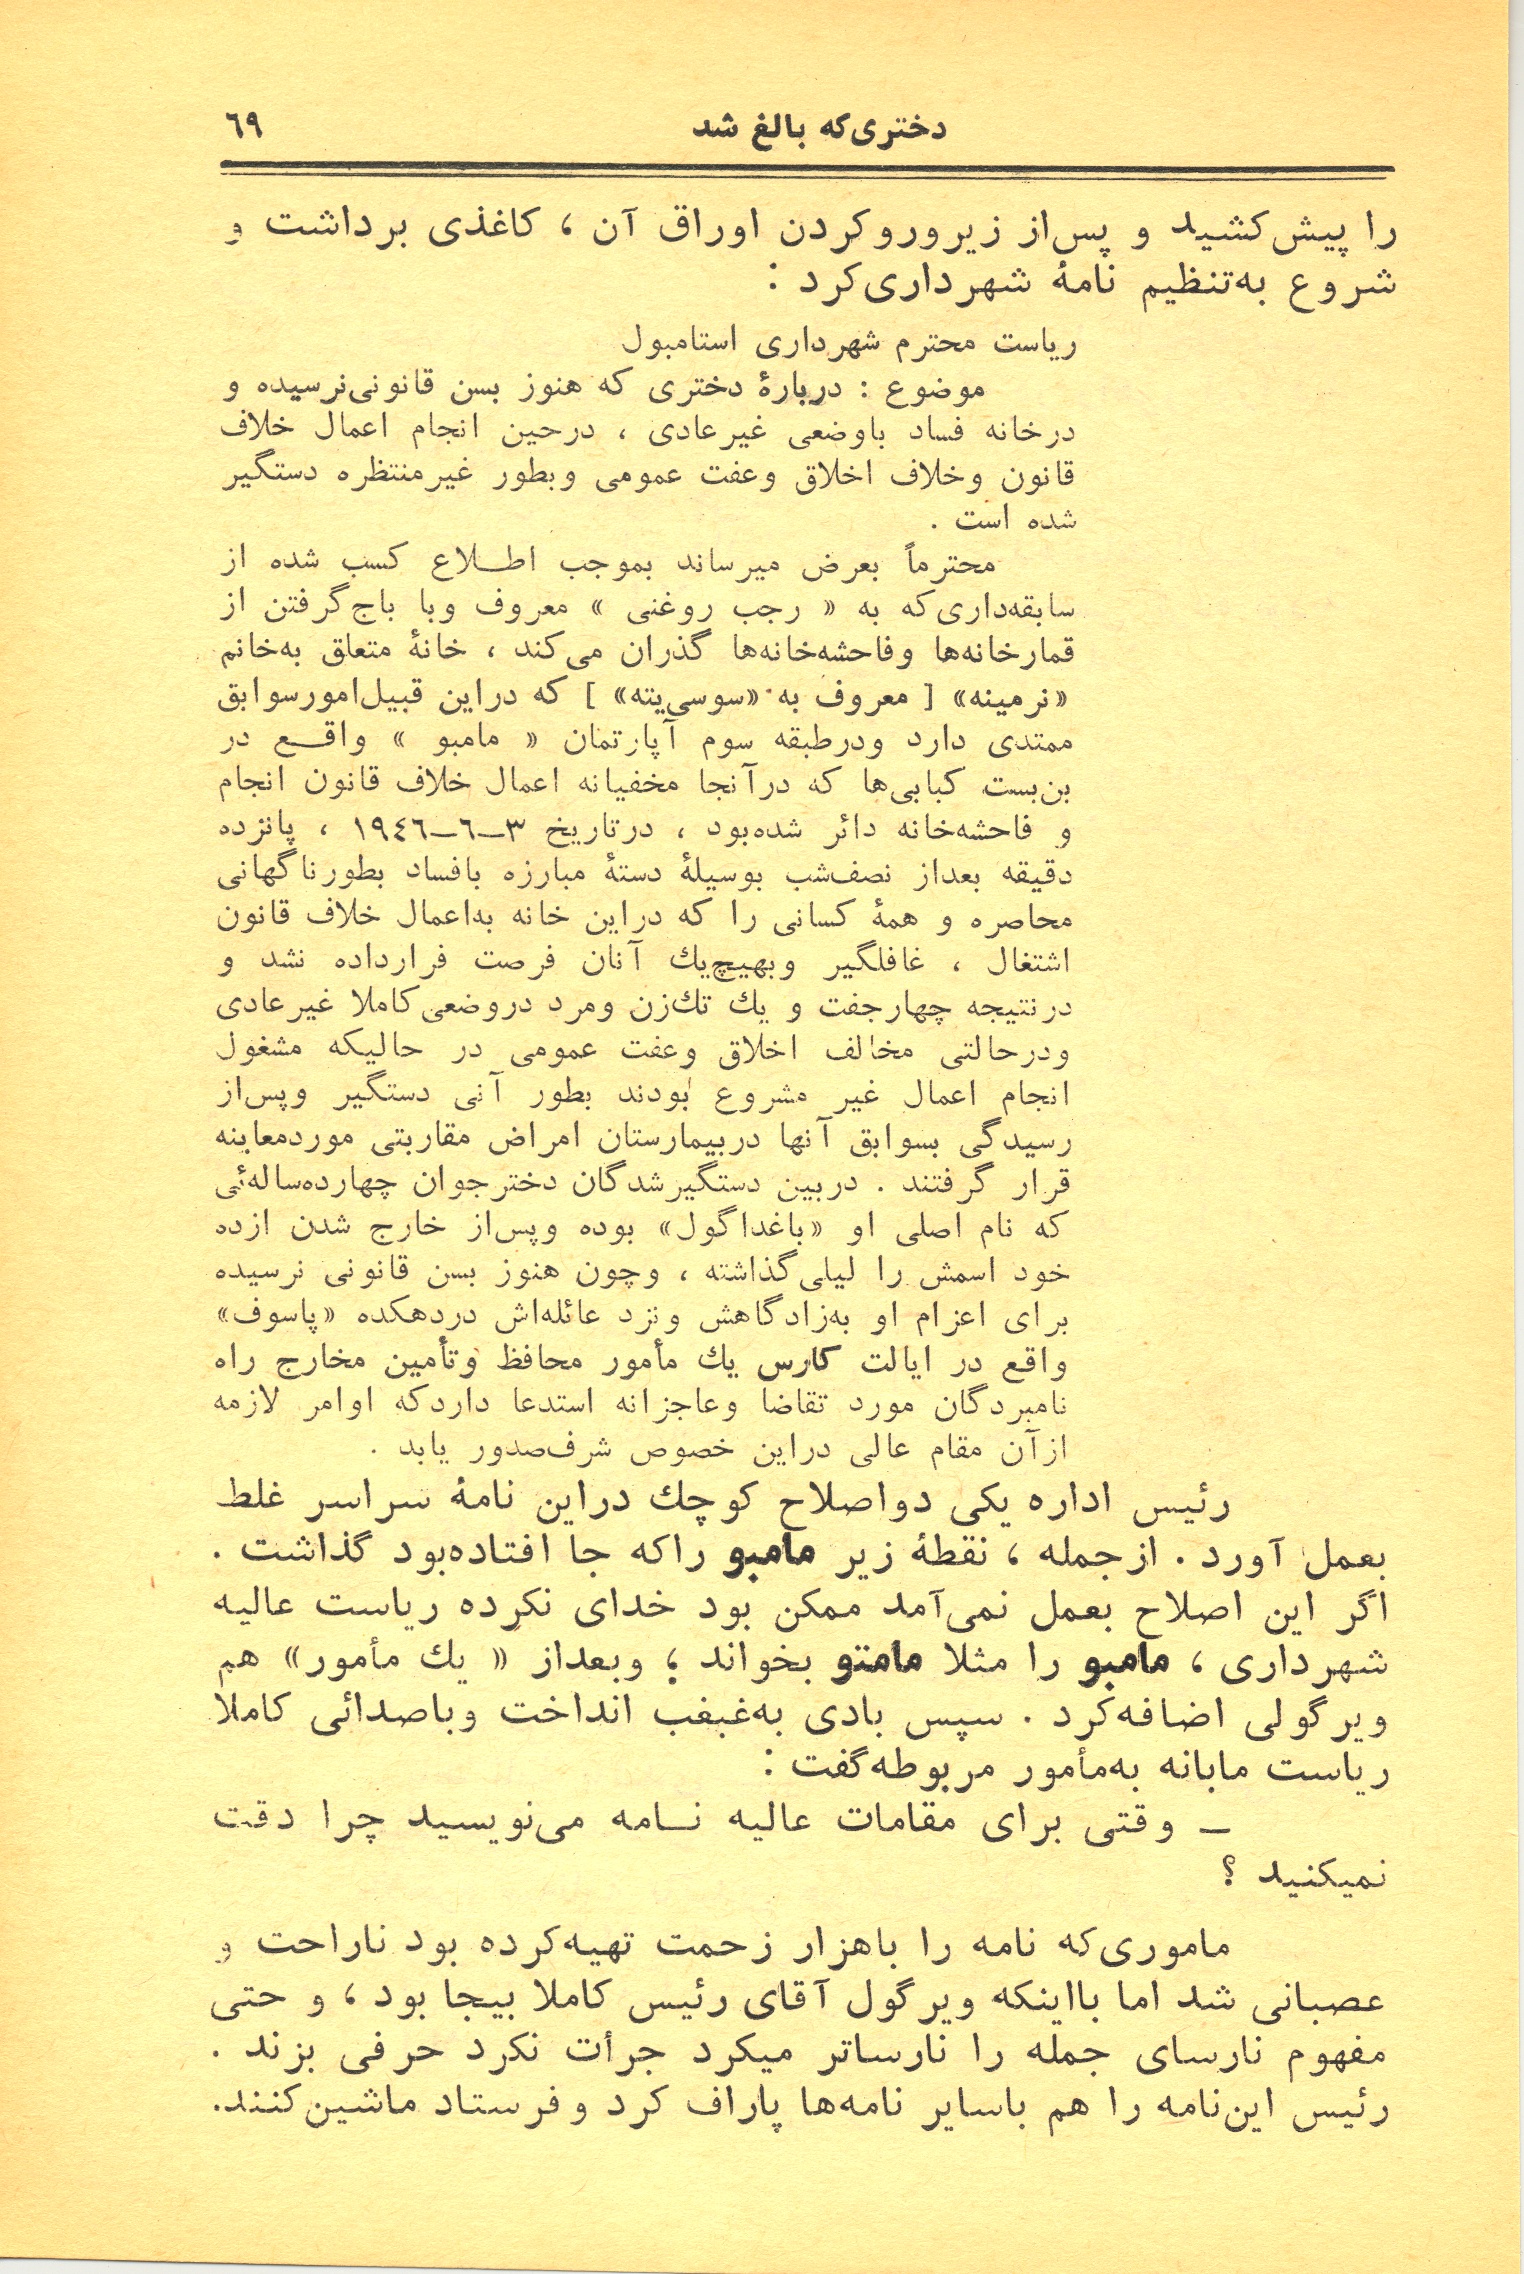 دختری‌که بالغ شد ٦٩
را پیش‌کشید و پس‌از زیروروکردن اوراق آن ، کاغذی برداشت و
شروع به‌تنظیم نامهٔ شهرداری‌کرد :
ریاست محترم شهرداری استامبول
موضوع : دربارهٔ دختری که هنوز بسن قانونی‌نرسیده و
درخانه فساد باوضعی غیرعادی ، درحین انجام اعمال خلاف
قانون وخلاف اخلاق وعفت عمومی وبطور غیرمنتظره دستگیر
شده است .
محترماً بعرض میرساند بموجب اطـلاع کسب شده از
سابقه‌داری‌که به « رجب روغنی » معروف وبا باج‌گرفتن از
قمارخانه‌ها وفاحشه‌خانه‌ها گذران می‌کند ، خانهٔ متعلق به‌خانم
«نرمینه» [ معروف به «سوسی‌یته» ] که دراین قبیل‌امورسوابق
ممتدی دارد ودرطبقه سوم آپارتمان « مامبو » واقـع در
بن‌بست کبابی‌ها که درآنجا مخفیانه اعمال خلاف قانون انجام
و فاحشه‌خانه دائر شده‌بود ، درتاریخ ٣ـ٦ـ١٩٤٦ ، پانزده
دقیقه بعداز نصف‌شب بوسیلهٔ دستهٔ مبارزه بافساد بطورناگهانی
محاصره و همهٔ کسانی را که دراین خانه به‌اعمال خلاف قانون
اشتغال ، غافلگیر وبهیچ‌یك آنان فرصت فرارداده نشد و
درنتیجه چهارجفت و یك تك‌زن ومرد دروضعی‌کاملا غیرعادی
ودرحالتی مخالف اخلاق وعفت عمومی در حالیکه مشغول
انجام اعمال غیر مشروع بودند بطور آنی دستگیر وپس‌از
رسیدگی بسوابق آنها دربیمارستان امراض مقاربتی موردمعاینه
قرار گرفتند . دربین دستگیرشدگان دخترجوان چهارده‌ساله‌ئی
که نام اصلی او «باغداگول» بوده وپس‌از خارج شدن ازده
خود اسمش را لیلی‌گذاشته ، وچون هنوز بسن قانونی نرسیده
برای اعزام او به‌زادگاهش ونزد عائله‌اش دردهکده «پاسوف»
واقع در ایالت کارس یك مأمور محافظ وتأمین مخارج راه
نامبردگان مورد تقاضا وعاجزانه استدعا داردکه اوامر لازمه
ازآن مقام عالی دراین خصوص شرف‌صدور یابد .
رئیس اداره یکی دواصلاح کوچك دراین نامهٔ سراسر غلط
بعمل آورد . ازجمله ، نقطهٔ زیر مامبو راکه جا افتاده‌بود گذاشت .
اگر این اصلاح بعمل نمی‌آمد ممکن بود خدای نکرده ریاست عالیه
شهرداری ، مامبو را مثلا مامتو بخواند ؛ وبعداز « یك مأمور» هم
ویرگولی اضافه‌کرد . سپس بادی به‌غبغب انداخت وباصدائی کاملا
ریاست مابانه به‌مأمور مربوطه‌گفت :
ـ وقتی برای مقامات عالیه نـامه می‌نویسید چرا دقت
نمیکنید ؟
ماموری‌که نامه را باهزار زحمت تهیه‌کرده بود ناراحت و
عصبانی شد اما بااینکه ویرگول آقای رئیس کاملا بیجا بود ، و حتی
مفهوم نارسای جمله را نارساتر میکرد جرأت نکرد حرفی بزند .
رئیس این‌نامه را هم باسایر نامه‌ها پاراف کرد وفرستاد ماشین‌کنند.